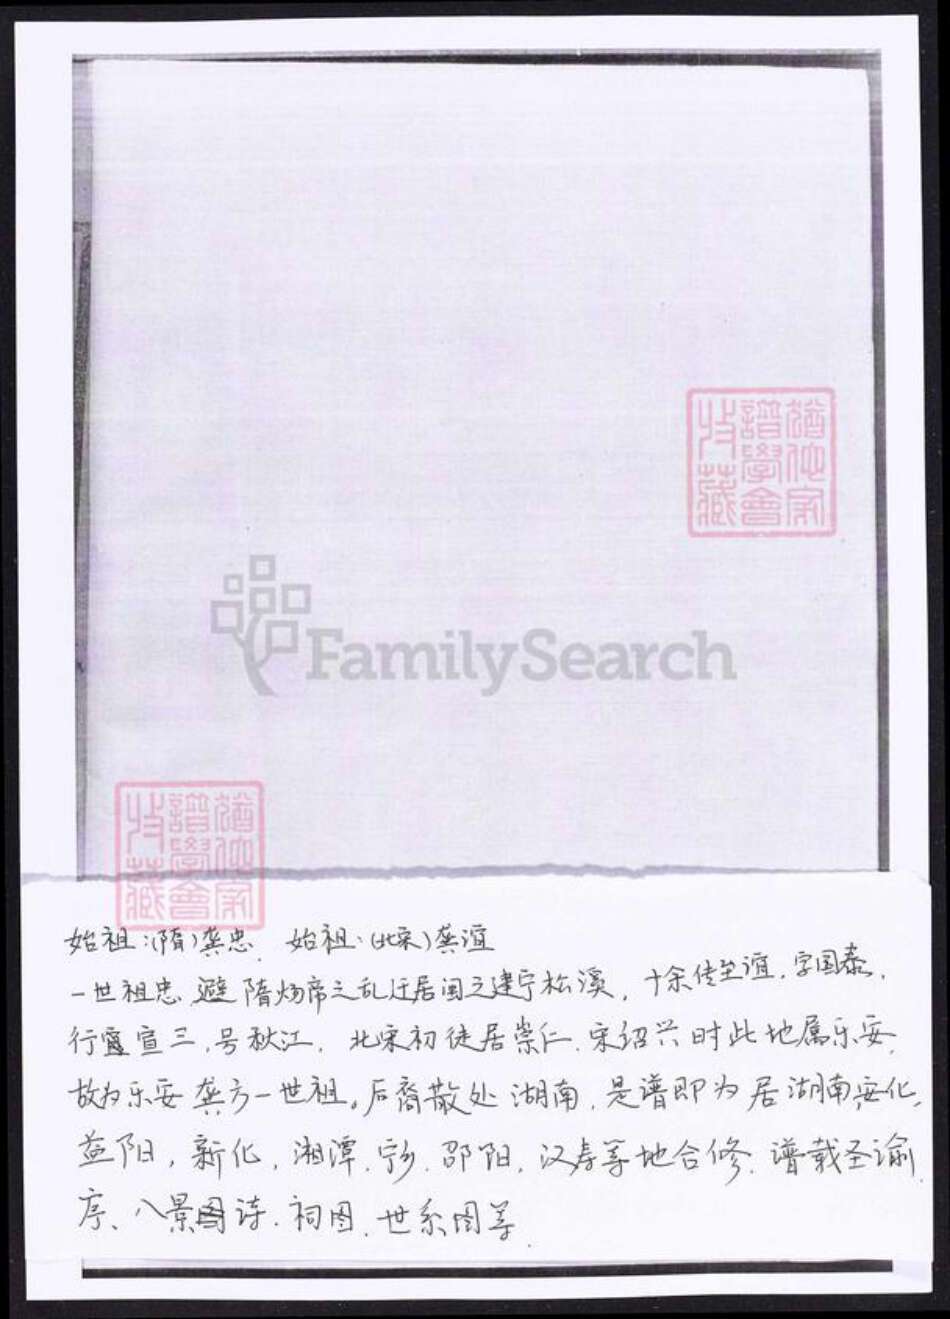 譜學會
收藏
FamilySearch
譜學會
收藏
始祖:(隋)龚忠. 始祖:(北宋)龚谊
一世祖忠,避隋炀帝之乱迁居闽之建宁松溪,十余传至谊,字国泰,
行宣三,号秋江,北宋初徒居崇仁,宋绍兴时此地属乐安,
故为乐安龚方一世祖。后裔散处湖南,是谱即为居湖南安化,
益阳,新化,湘潭,宁乡,邵阳,汉寿等地合修,谱载圣谕,
序、八景图诗,祠图,世系图等.